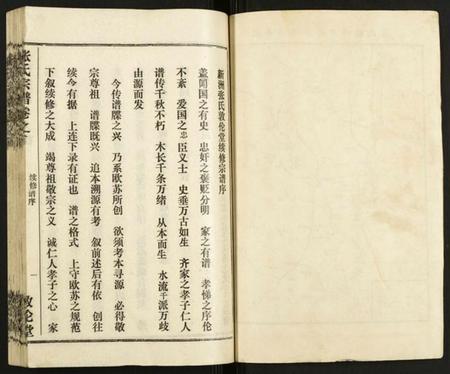 新洲张氏敦伦堂续修宗谱序
盖闻国之有史 忠奸之褒贬分明 家之有谱 孝悌之序伦
不紊 爱国之忠臣义士 史垂万古如生 齐家之孝子仁人
谱传千秋不朽 木长千条万绪 从本而生 水流千派万歧
由源而发
今传谱牒之兴 乃系欧苏所创 欲须考本寻源 必得敬
宗尊祖 谱牒既兴 追本溯源有考 叙前述后有依 创往
续今有据 上连下录有证也 谱之格式 上守欧苏之规范
下叙续修之大成 竭尊祖敬宗之义 诚仁人孝子之心 家
张氏宗谱卷之
续修谱序
一
敦伦堂